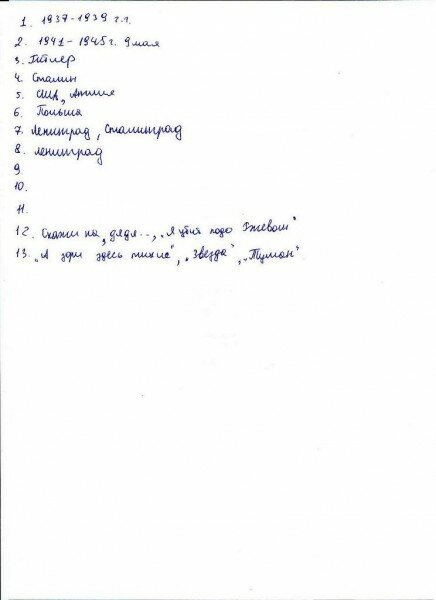 1. 1937-1939 г.г.
2. 1941-1945 г. 9 мая
3. Гитлер
4. Сталин
5. США, Англия
6. Польша
7. Ленинград, Сталинград
8. Ленинград
9
10.
11.
12. Скажи ка, дядя..., „Я убит подо Ржевом"
13. „А зори здесь тихие", „Звезда", „Туман"